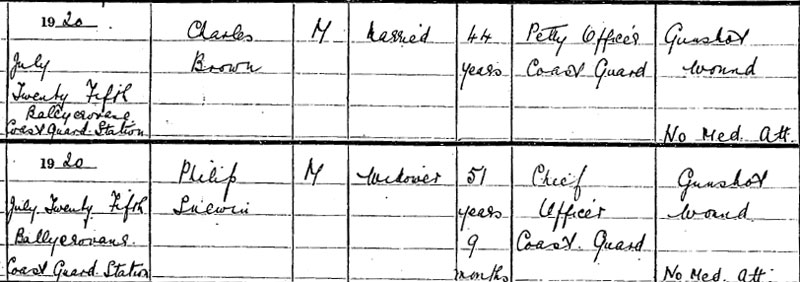 1920 Charles M Married 44 Petty Officer Gunshot
July Brown years Coast Guard Wound
Twenty Fifth
Ballycrovane
Coast Guard Station No Med. Att.
1920 Philip M Widower 51 Chief Gunshot
July Twenty Fifth Snewin years Officer Wound
Ballycrovane 9 Coast Guard
Coast Guard Station months No Med. Att.